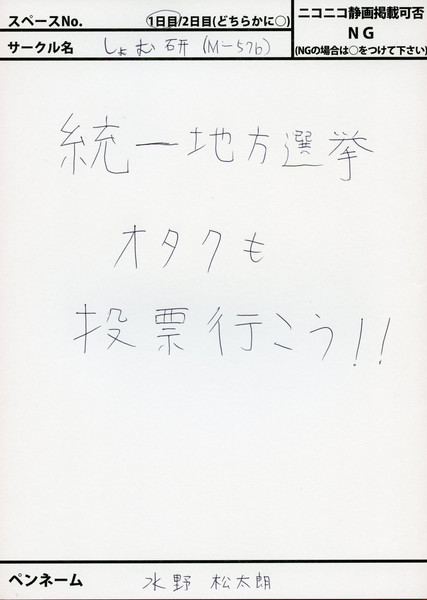 スペースNo. 1日目/2日目(どちらかに○)
ニコニコ静画掲載可否
NG
(NGの場合は○をつけて下さい)
サークル名 しょむ研 (M-57b)
統一地方選挙
オタクも
投票行こう!!
ペンネーム 水野 松太朗